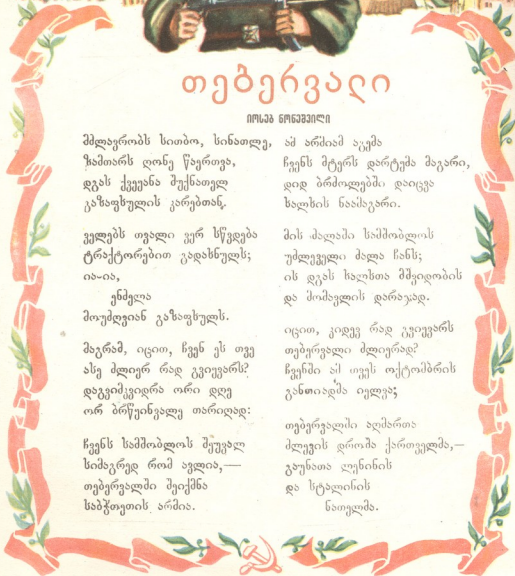 თებერვალი
იოსებ ნონეშვილი
მძლავრობს სითბო, სინათლე,
ზამთარს ღონე წაერთვა,
დგას ქვეყანა შუქნათელ
გაზაფხულის კარებთან.
ველებს თვალი ვერ სწვდება
ტრაქტორებით გადახნულს;
ია-ია,
ენძელა
მოუძღვიან გაზაფხულს.
მაგრამ, იცით, ჩვენ ეს თვე
ასე ძლიერ რად გვიყვარს?
დაგვიმკვიდრა ორი დღე
ორ ბრწყინვალე თარიღად:
ჩვენს სამშობლოს შეუვალ
სიმაგრედ რომ ავლია,—
თებერვალში შეიქმნა
საბჭოთეთის არმია.
ამ არმიამ აგემა
ჩვენს მტერს დარტყმა მაგარი,
დიდ ბრძოლებში დაიცვა
ხალხის ნაამაგარი.
მის ძალაში სამშობლოს
უძლეველი ძალა ჩანს;
ის დგას ხალხთა მშვიდობის
და მომავლის დარაჯად.
იცით, კიდევ რად გვიყვარს
თებერვალი ძლიერად?
ჩვენში ამ თვეს ოქტომბრის
განთიადმა იელვა;
თებერვალში აღმართა
ძლევის დროშა ქართველმა,—
გაუნათა ლენინის
და სტალინის
ნათელმა.